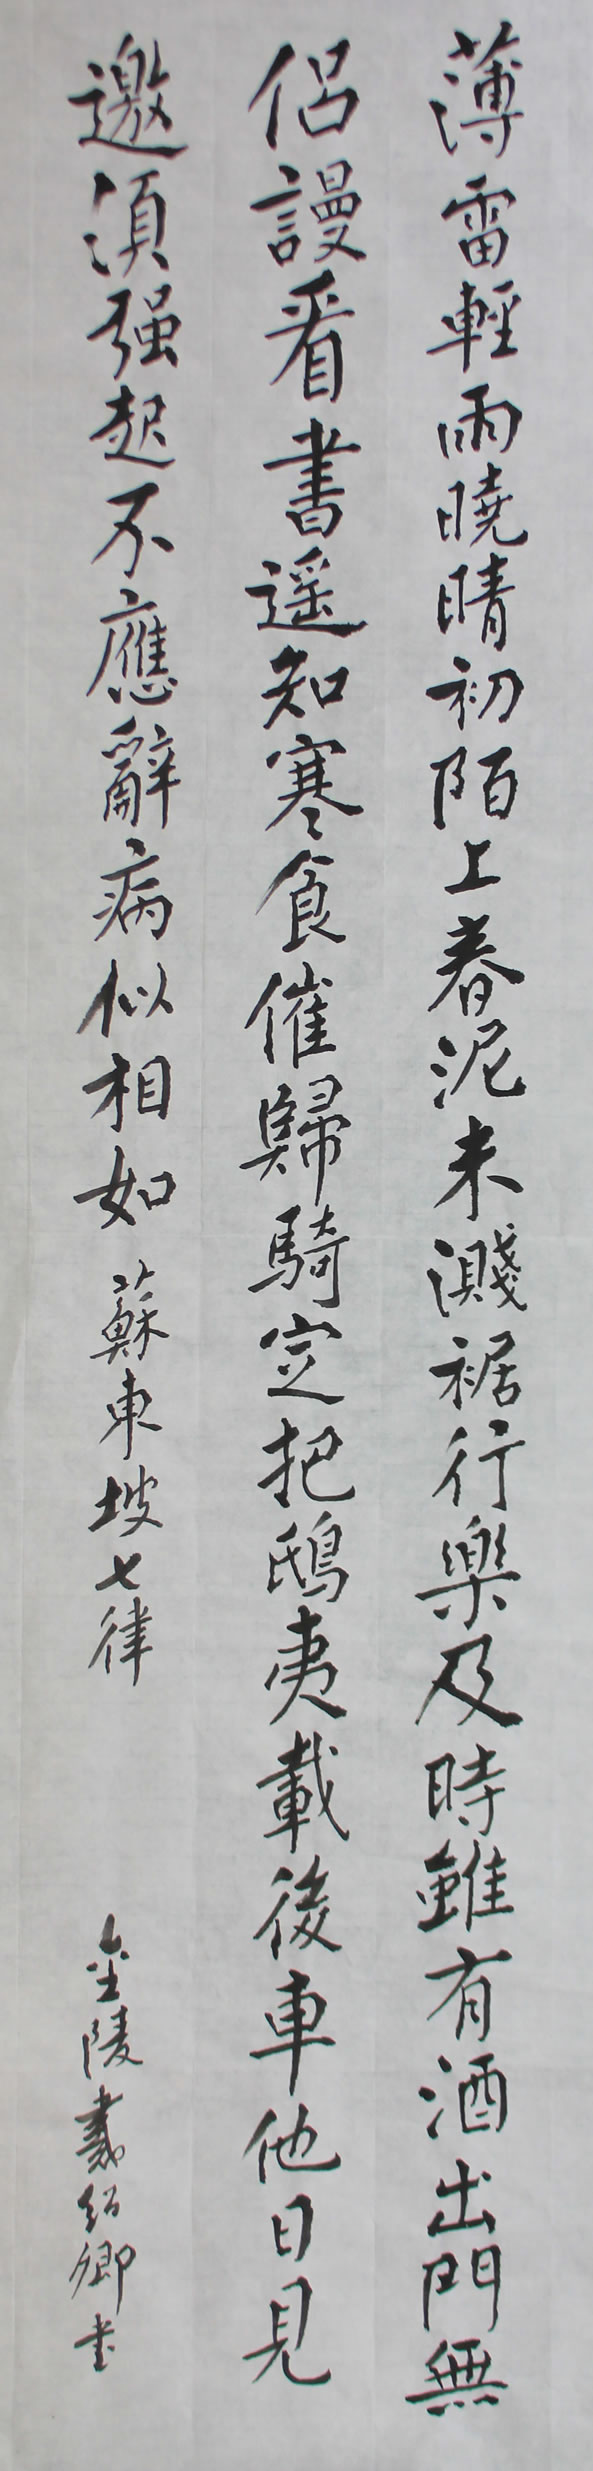 薄雷輕雨曉晴初陌上春泥未濺裾行樂及時雖有酒出門無
侶謾看書遥知寒食催歸騎定把鴟夷載後車他日見
邀須强起不應辭病似相如 蘇東坡七律
金陵戴紹卿书